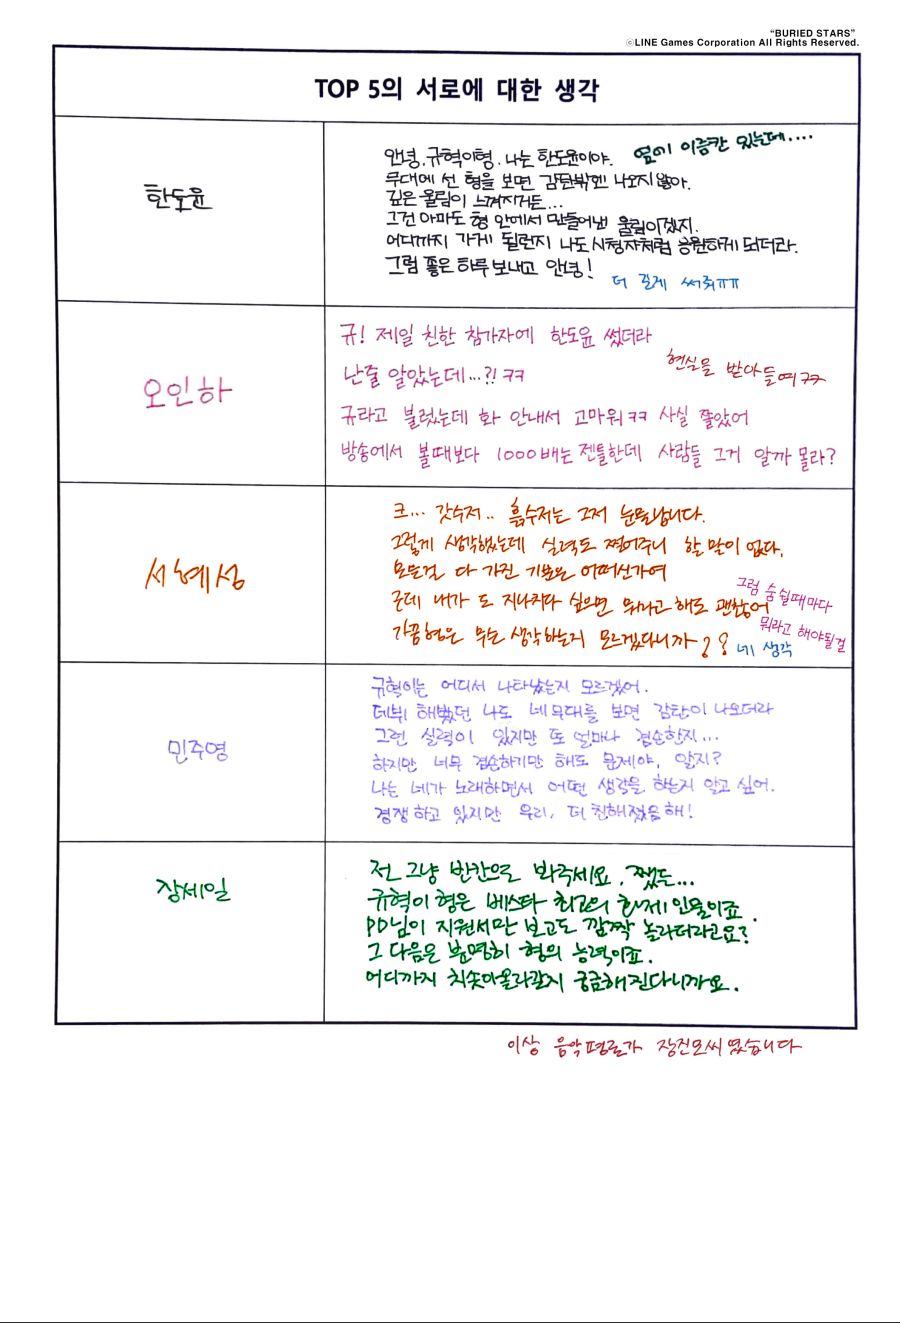 "BURIED STARS"
©LINE Games Corporation All Rights Reserved.
TOP 5의 서로에 대한 생각
한도윤
안녕. 규혁이형. 나는 한도윤이야. 옆에 이름칸 있는데....
무대에 선 형을 보면 감탄밖에 나오지 않아.
깊은 울림이 느껴지거든...
그건 아마도 형 안에서 만들어낸 울림이겠지.
어디까지 가게 될런지 나도 시청자처럼 응원하게 되더라.
그럼 좋은 하루 보내고 안녕!
더 길게 써줘ㅠㅠ
오인하
규! 제일 친한 참가자에 한도윤 썼더라
난줄 알았는데...?! ㅋㅋ
현실을 받아들여ㅋㅋ
규라고 불렀는데 화 안내서 고마워ㅋㅋ 사실 쫄았어
방송에서 볼때보다 1000배는 젠틀한데 사람들 그거 알까 몰라?
서혜성
크... 갓수저.. 흙수저는 그저 눈물납니다.
그렇게 생각했는데 실력도 쩔어주니 할 말이 없다.
모든걸 다 가진 기분은 어떠신가여
근데 내가 도 지나치다 싶으면 뭐라고 해도 괜찮어
그럼 숨 쉴때마다
뭐라고 해야될걸
가끔형은 무슨 생각하는지 모르겠다니까??
네 생각
민주영
규혁이는 어디서 나타났는지 모르겠어.
데뷔 해봤던 나도 네무대를 보면 감탄이 나오더라
그런 실력이 있지만 또 얼마나 겸손한지...
하지만 너무 겸손하기만 해도 문제야, 알지?
나는 네가 노래하면서 어떤 생각을 하는지 알고 싶어.
경쟁하고 있지만 우리, 더 친해졌음 해!
장세일
전 그냥 반칸으로 봐주세요. 쨌든...
규혁이 형은 베스타 최고의 화제 인물이죠.
PD님이 지원서만 보고도 깜짝 놀라더라고요?
그 다음은 분명히 형의 능력이죠.
어디까지 치솟아올라갈지 궁금해진다니까요.
이상 음악평론가 장진모씨 였습니다